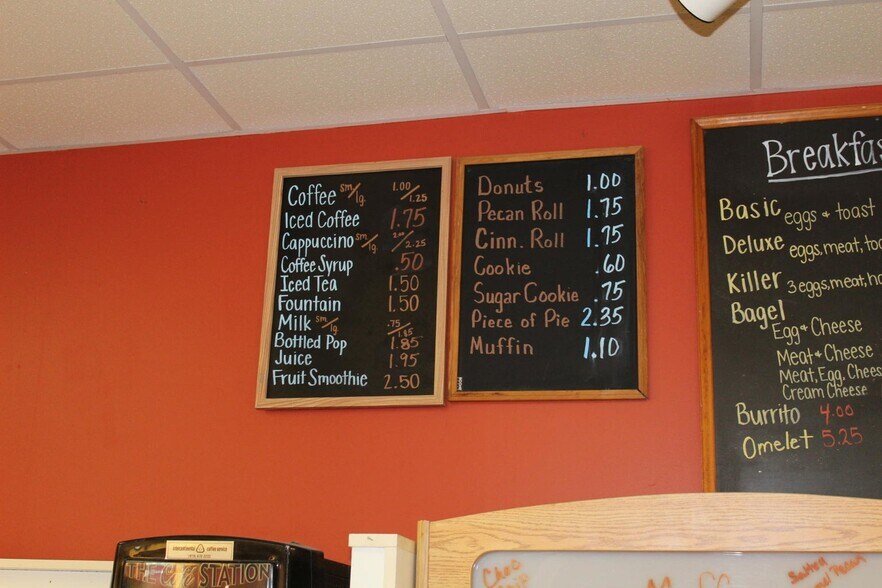 Coffee sm/lg. 1.00/1.25
Iced Coffee 1.75
Cappuccino sm/lg. 2.00/2.25
Coffee Syrup .50
Iced Tea 1.50
Fountain 1.50
Milk sm/lg. .75/1.85
Bottled Pop 1.85
Juice 1.95
Fruit Smoothie 2.50
Donuts 1.00
Pecan Roll 1.75
Cinn. Roll 1.75
Cookie .60
Sugar Cookie .75
Piece of Pie 2.35
Muffin 1.10
Breakfas
Basic eggs & toast
Deluxe eggs, meat, toa
Killer 3 eggs, meat, ha
Bagel
Egg & Cheese
Meat & Cheese
Meat, Egg, Chees
Cream Cheese
Burrito 4.00
Omelet 5.25
coffee service
THE STATION
Choc